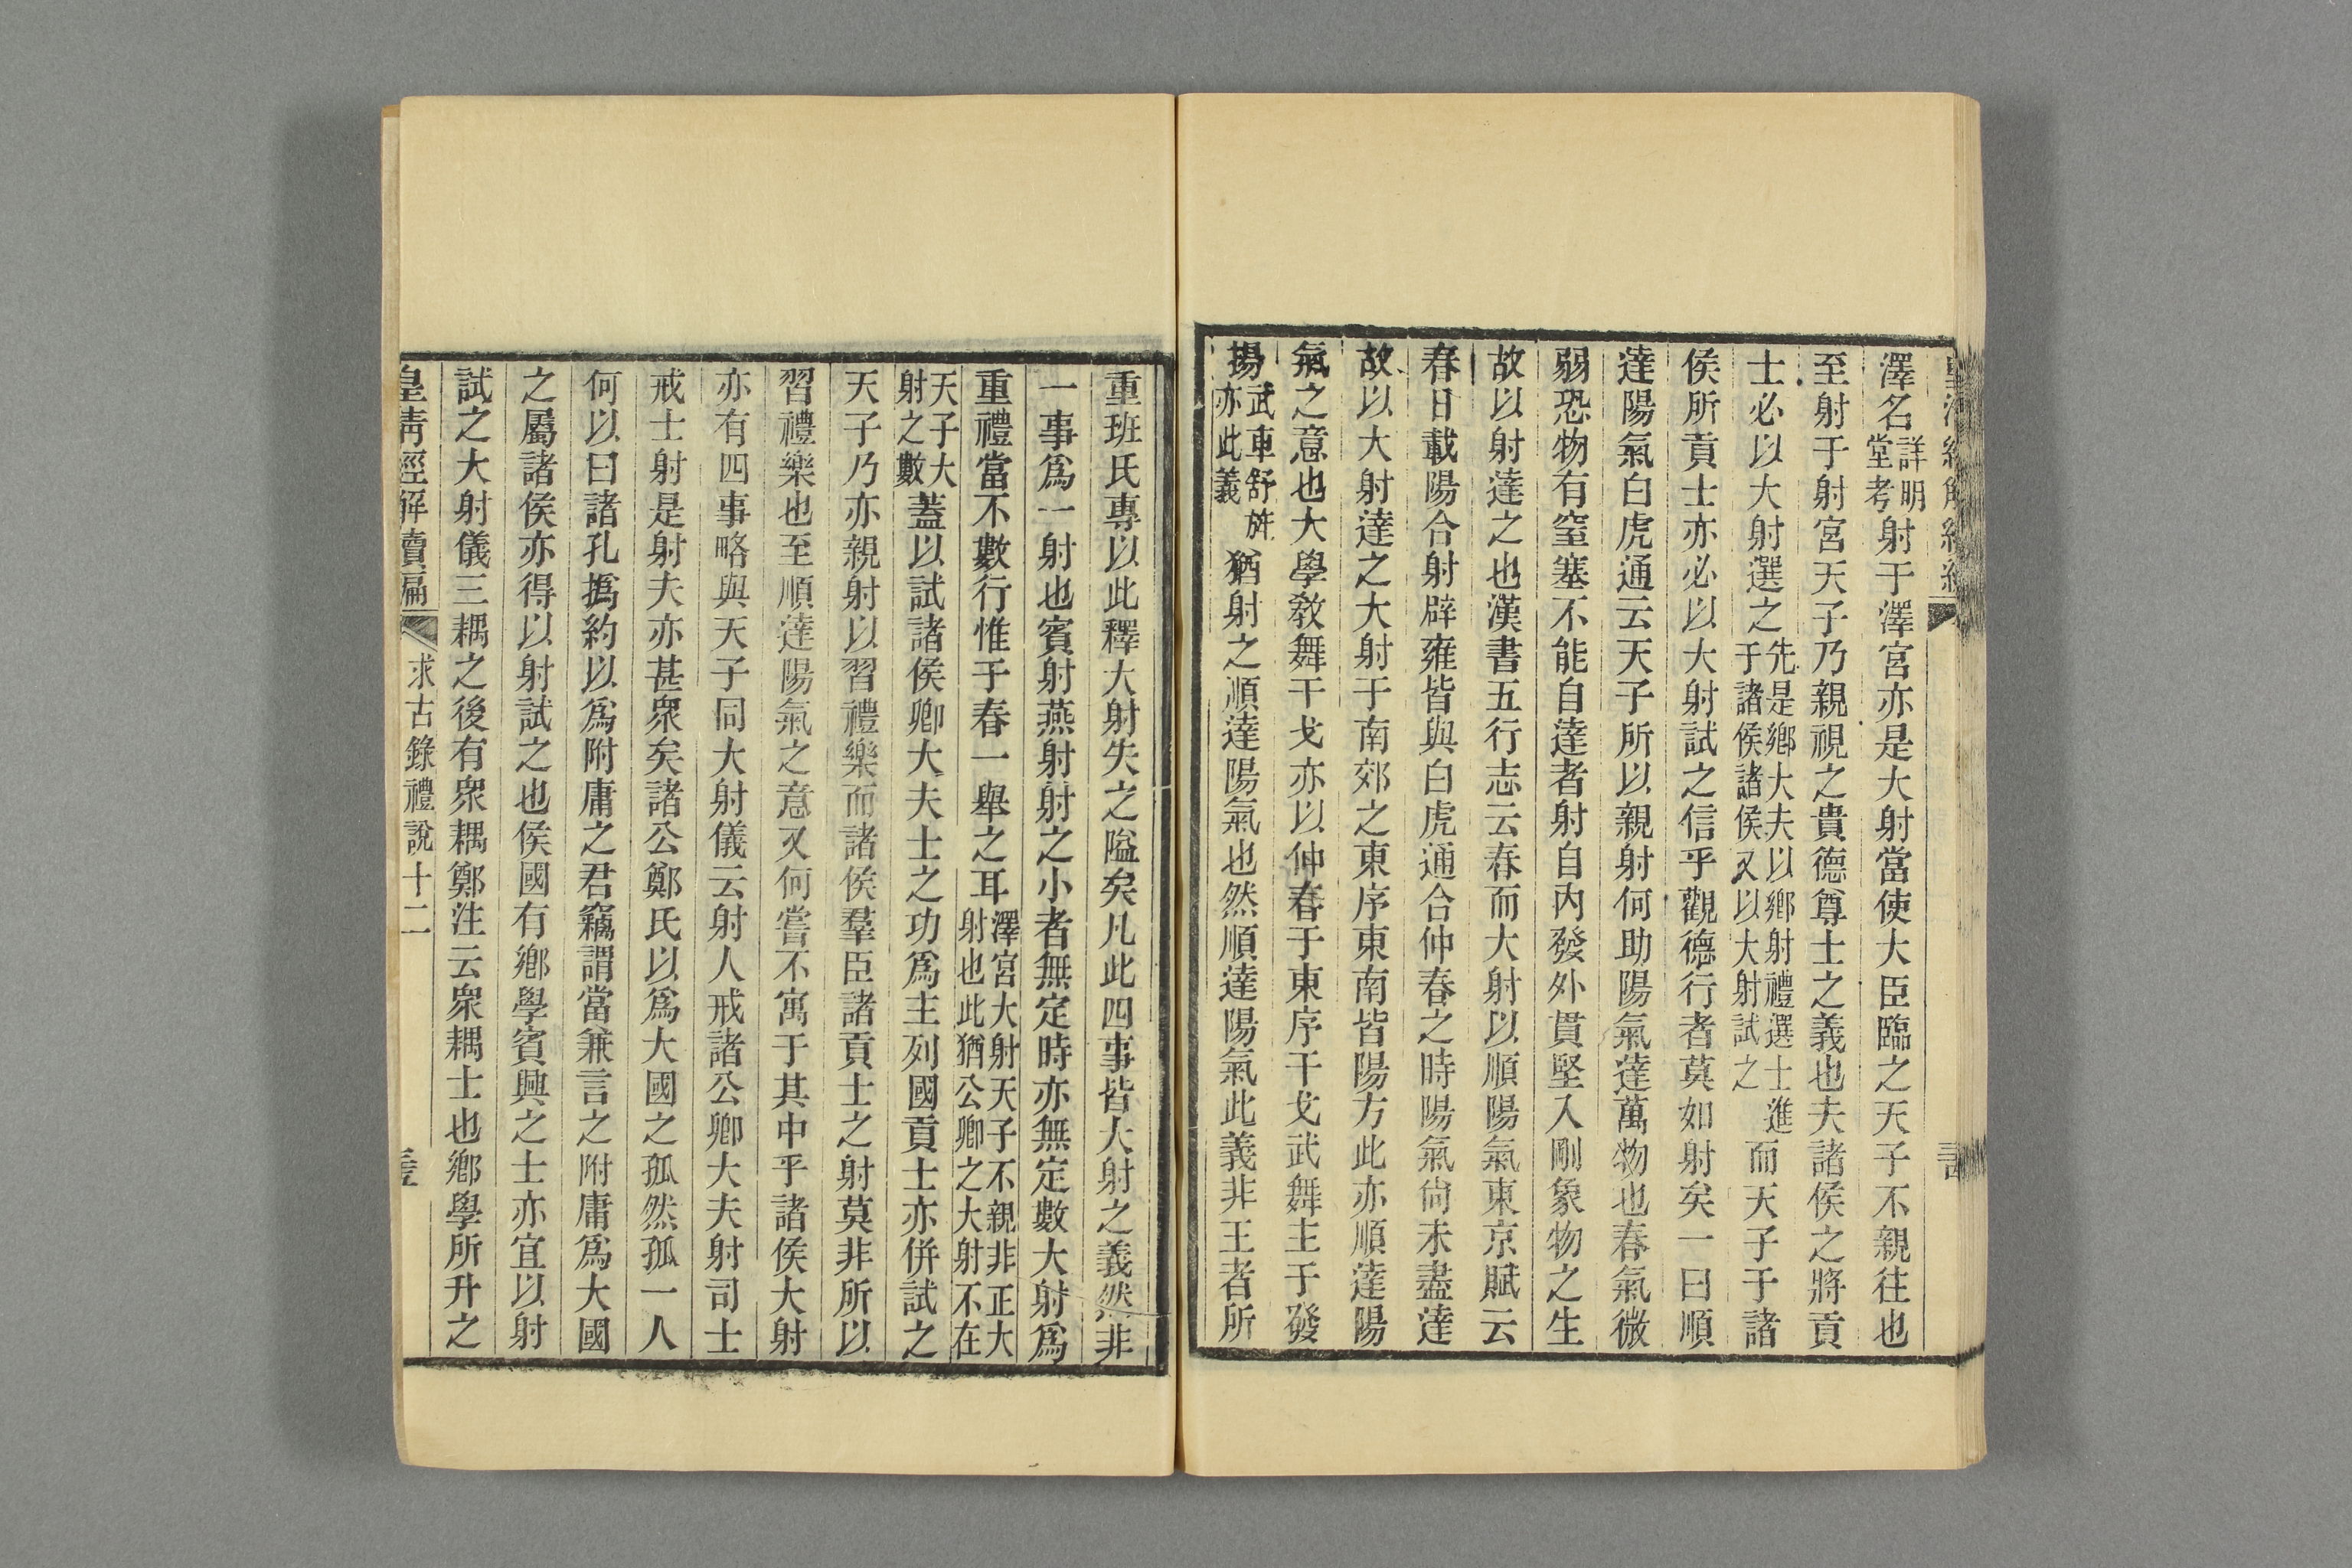 澤名詳明堂考射于澤宮亦是大射當使大臣臨之天子不親往也
至射于射宮天子乃親視之貴德尊士之義也夫諸侯之將貢
士必以大射選之先是鄉大夫以鄉射禮選士進于諸侯諸侯又以大射試之而天子于諸
侯所貢士亦必以大射試之信乎觀德行者莫如射矣一曰順
達陽氣白虎通云天子所以親射何助陽氣達萬物也春氣微
弱恐物有窒塞不能自達者射自內發外貫堅入剛象物之生
故以射達之也漢書五行志云春而大射以順陽氣東京賦云
春日載陽合射辟雍皆與白虎通合仲春之時陽氣尙未盡達
故以大射達之大射于南郊之東序東南皆陽方此亦順達陽
氣之意也大學敎舞干戈亦以仲春于東序干戈武舞主于發
揚武車舒旂亦此義猶射之順達陽氣也然順達陽氣此義非王者所
重班氏專以此釋大射失之隘矣凡此四事皆大射之義然非
一事爲一射也賓射燕射射之小者無定時亦無定數大射爲
重禮當不數行惟于春一舉之耳澤宮大射天子不親非正大射也此猶公卿之大射不在
天子大射之數蓋以試諸侯卿大夫士之功爲主列國貢士亦併試之
天子乃亦親射以習禮樂而諸侯羣臣諸貢士之射莫非所以
習禮樂也至順達陽氣之意又何嘗不寓于其中乎諸侯大射
亦有四事略與天子同大射儀云射人戒諸公卿大夫射司士
戒士射是射夫亦甚衆矣諸公鄭氏以爲大國之孤然孤一人
何以曰諸孔撝約以爲附庸之君竊謂當兼言之附庸爲大國
之屬諸侯亦得以射試之也侯國有鄉學賓興之士亦宜以射
試之大射儀三耦之後有衆耦鄭注云衆耦士也鄉學所升之
皇淸經解續編 求古錄禮說十二